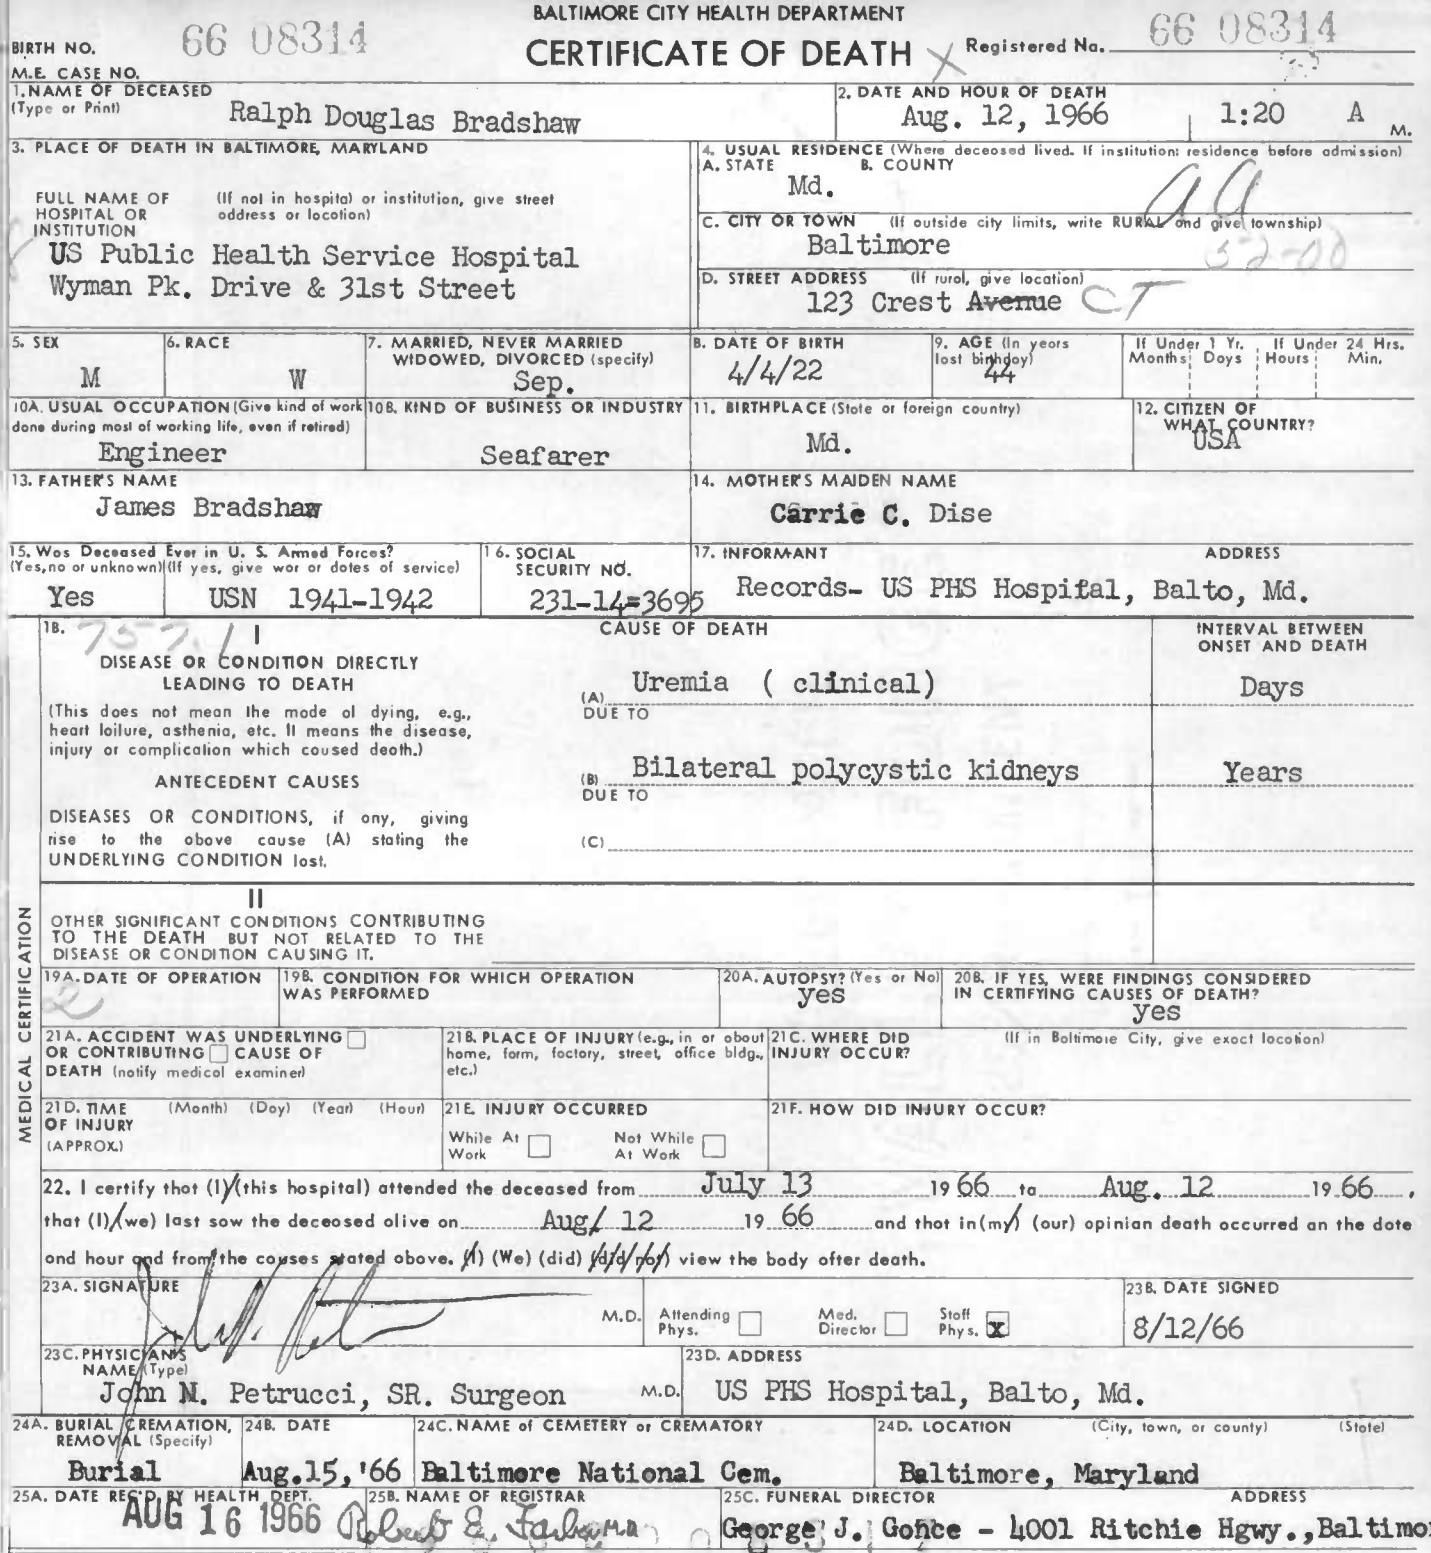 BALTIMORE CITY HEALTH DEPARTMENT
CERTIFICATE OF DEATH
BIRTH NO. 66 08314
Registered No. 66 08314
M.E. CASE NO.
1. NAME OF DECEASED
(Type or Print) Ralph Douglas Bradshaw
2. DATE AND HOUR OF DEATH
Aug. 12, 1966 1:20 A M.
3. PLACE OF DEATH IN BALTIMORE, MARYLAND
FULL NAME OF HOSPITAL OR INSTITUTION
(If not in hospital or institution, give street address or location)
US Public Health Service Hospital
Wyman Pk. Drive & 31st Street
4. USUAL RESIDENCE (Where deceased lived. If institution: residence before admission)
A. STATE B. COUNTY
Md. AA
C. CITY OR TOWN (If outside city limits, write RURAL and give township)
Baltimore 52-00
D. STREET ADDRESS (If rural, give location)
123 Crest Avenue CT
5. SEX
M
6. RACE
W
7. MARRIED, NEVER MARRIED
WIDOWED, DIVORCED (specify)
Sep.
8. DATE OF BIRTH
4/4/22
9. AGE (In years
last birthday)
44
If Under 1 Yr.
Months Days
If Under 24 Hrs.
Hours Min.
10A. USUAL OCCUPATION (Give kind of work
done during most of working life, even if retired)
Engineer
10B. KIND OF BUSINESS OR INDUSTRY
Seafarer
11. BIRTHPLACE (State or foreign country)
Md.
12. CITIZEN OF
WHAT COUNTRY?
USA
13. FATHER'S NAME
James Bradshaw
14. MOTHER'S MAIDEN NAME
Carrie C. Dise
15. Was Deceased Ever in U. S. Armed Forces?
(Yes, no or unknown) (If yes, give war or dates of service)
Yes USN 1941-1942
16. SOCIAL
SECURITY NO.
231-14=3695
17. INFORMANT ADDRESS
Records- US PHS Hospital, Balto, Md.
MEDICAL CERTIFICATION
18. 757.1 I
CAUSE OF DEATH
INTERVAL BETWEEN
ONSET AND DEATH
DISEASE OR CONDITION DIRECTLY
LEADING TO DEATH
(This does not mean the mode of dying, e.g.,
heart failure, asthenia, etc. It means the disease,
injury or complication which caused death.)
(A) Uremia ( clinical) Days
DUE TO
ANTECEDENT CAUSES
(B) Bilateral polycystic kidneys Years
DUE TO
DISEASES OR CONDITIONS, if any, giving
rise to the above cause (A) stating the
UNDERLYING CONDITION last.
(C)
II
OTHER SIGNIFICANT CONDITIONS CONTRIBUTING
TO THE DEATH BUT NOT RELATED TO THE
DISEASE OR CONDITION CAUSING IT.
19A. DATE OF OPERATION
2
19B. CONDITION FOR WHICH OPERATION
WAS PERFORMED
20A. AUTOPSY? (Yes or No)
yes
20B. IF YES, WERE FINDINGS CONSIDERED
IN CERTIFYING CAUSES OF DEATH?
yes
21A. ACCIDENT WAS UNDERLYING
OR CONTRIBUTING CAUSE OF
DEATH (notify medical examiner)
21B. PLACE OF INJURY (e.g., in or about
home, farm, factory, street, office bldg.,
etc.)
21C. WHERE DID
INJURY OCCUR?
(If in Baltimore City, give exact location)
21D. TIME
OF INJURY
(APPROX.)
(Month) (Day) (Year) (Hour)
21E. INJURY OCCURRED
While At
Work
Not While
At Work
21F. HOW DID INJURY OCCUR?
22. I certify that (I) (this hospital) attended the deceased from July 13 19 66 to Aug. 12 19 66 ,
that (I) (we) last saw the deceased alive on Aug/ 12 19 66 and that in (my) (our) opinian death occurred on the date
and hour and from the causes stated above. (I) (We) (did) (did not) view the body after death.
23A. SIGNATURE
M.D.
Attending
Phys.
Med.
Director
Staff
Phys. X
23B. DATE SIGNED
8/12/66
23C. PHYSICIAN'S
NAME (Type)
John N. Petrucci, SR. Surgeon M.D.
23D. ADDRESS
US PHS Hospital, Balto, Md.
24A. BURIAL CREMATION,
REMOVAL (Specify)
Burial
24B. DATE
Aug.15,'66
24C. NAME of CEMETERY or CREMATORY
Baltimore National Cem.
24D. LOCATION (City, town, or county) (State)
Baltimore, Maryland
25A. DATE REC'D BY HEALTH DEPT.
AUG 16 1966
25B. NAME OF REGISTRAR
Robert E. Farber M.D.
25C. FUNERAL DIRECTOR ADDRESS
George J. Gonce - 4001 Ritchie Hgwy., Baltimo